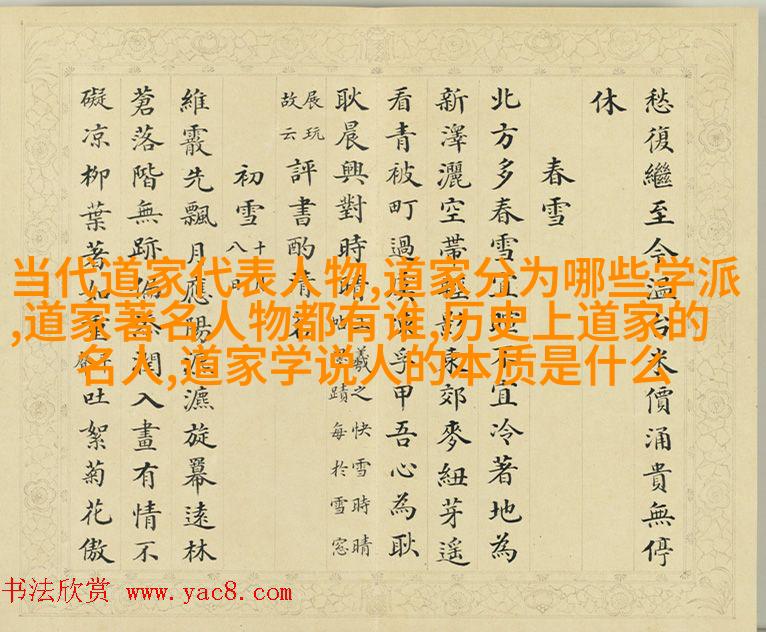 愁復繼至今温台米價涌貴無停
休
春雪
北方多春雪宜不宜冷著地為
新澤灑空帶輕影東郊麥紐芽遙
看青被町過孚甲吾心為耿
耿晨興對時晴
羲之快雪時晴
蹟每於雪窓
展玩
故云
評書酌清
初雪
十
八
維霰先飄月應陽瀌旋羃遠林
蒼落階無跡偏潤入畫有情不
礙凉柳葉著如重吐絮菊花傲
当代道家代表人物,道家分为哪些学派
,道家著名人物都有谁,历史上道家的
名人,道家学说人的本质是什么
书法欣赏 www.yac8.com